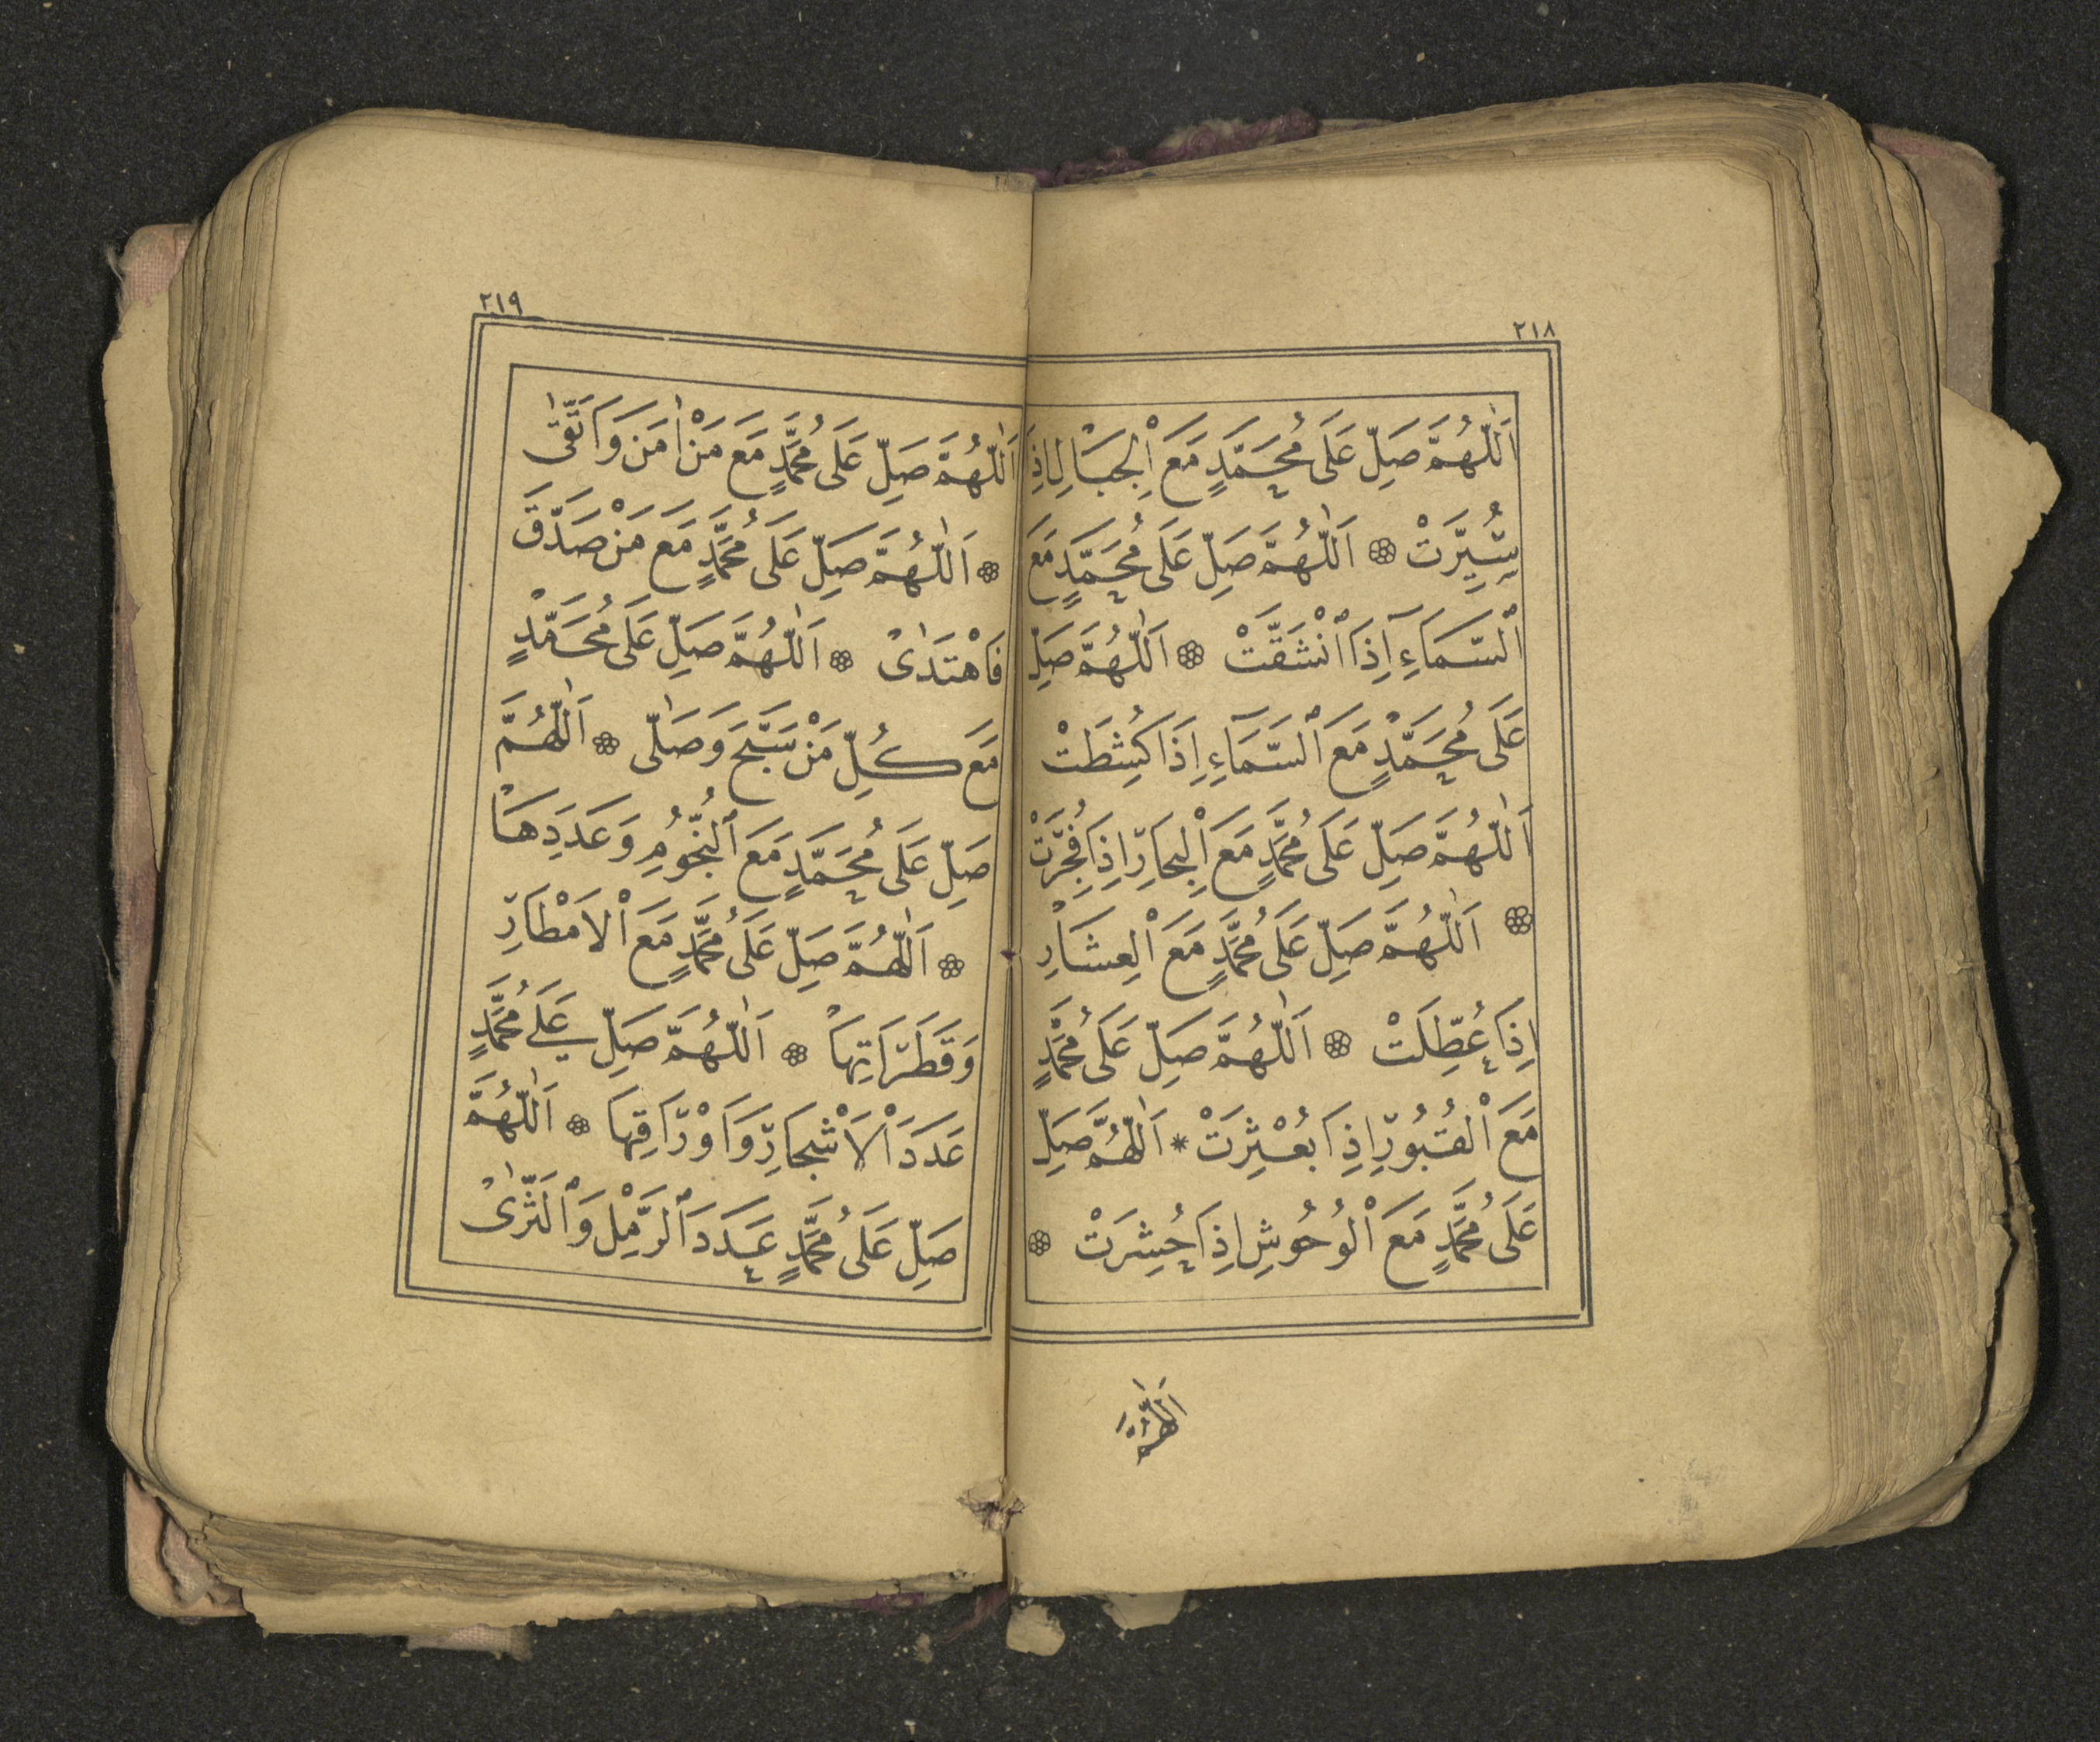 ٢١٨
اَللّٰهُمَّ صَلِّ عَلَى مُحَمَّدٍ مَعَ الْجِبَالِ اِذَا
سُيِّرَتْ ۞ اَللّٰهُمَّ صَلِّ عَلَى مُحَمَّدٍ مَعَ
السَّمَآءِ اِذَا انْشَقَّتْ ۞ اَللّٰهُمَّ صَلِّ
عَلَى مُحَمَّدٍ مَعَ السَّمَآءِ اِذَا كُشِطَتْ
اَللّٰهُمَّ صَلِّ عَلَى مُحَمَّدٍ مَعَ الْبِحَارِ اِذَا فُجِّرَتْ
۞ اَللّٰهُمَّ صَلِّ عَلَى مُحَمَّدٍ مَعَ الْعِشَارِ
اِذَا عُطِّلَتْ ۞ اَللّٰهُمَّ صَلِّ عَلَى مُحَمَّدٍ
مَعَ الْقُبُورِ اِذَا بُعْثِرَتْ * اَللّٰهُمَّ صَلِّ
عَلَى مُحَمَّدٍ مَعَ الْوُحُوشِ اِذَا حُشِرَتْ ۞
اَللّٰهُمَّ
٢١٩
اَللّٰهُمَّ صَلِّ عَلَى مُحَمَّدٍ مَعَ مَنْ اٰمَنَ وَاتَّقٰى
۞ اَللّٰهُمَّ صَلِّ عَلَى مُحَمَّدٍ مَعَ مَنْ صَدَّقَ
فَاهْتَدٰى ۞ اَللّٰهُمَّ صَلِّ عَلَى مُحَمَّدٍ
مَعَ كُلِّ مَنْ سَبَّحَ وَصَلّٰى ۞ اَللّٰهُمَّ
صَلِّ عَلَى مُحَمَّدٍ مَعَ النُّجُومِ وَعَدَدِهَا
۞ اَللّٰهُمَّ صَلِّ عَلَى مُحَمَّدٍ مَعَ الْاَمْطَارِ
وَقَطَرَاتِهَا ۞ اَللّٰهُمَّ صَلِّ عَلٰى مُحَمَّدٍ
عَدَدَ الْاَشْجَارِ وَاَوْرَاقِهَا ۞ اَللّٰهُمَّ
صَلِّ عَلَى مُحَمَّدٍ عَدَدَ الرَّمْلِ وَالثَّرٰى